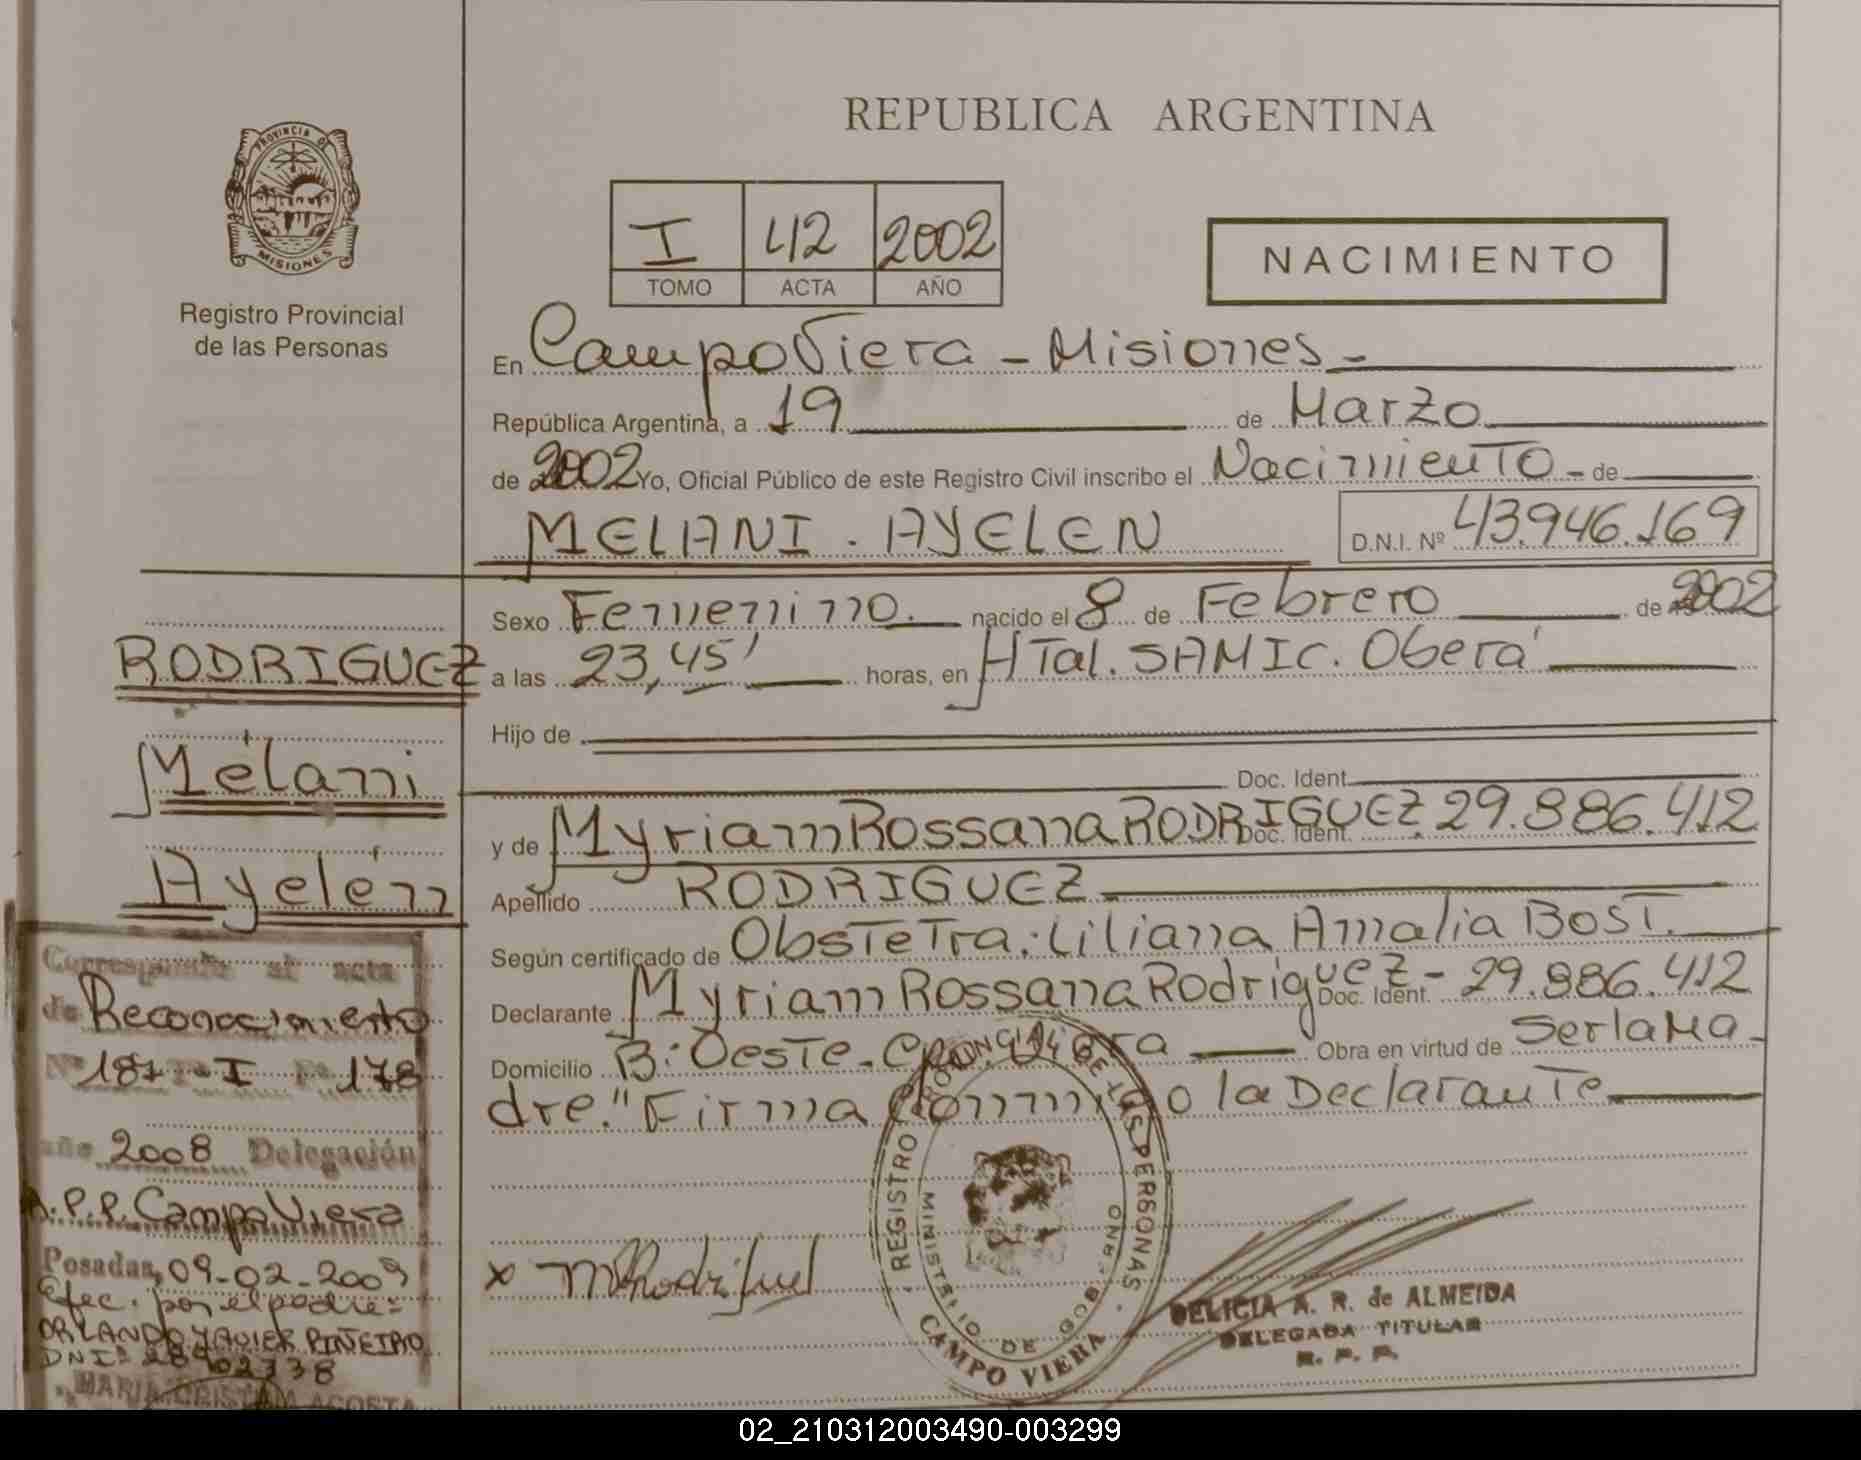 REPUBLICA ARGENTINA
PROVINCIA DE
MISIONES
Registro Provincial
de las Personas
I 42 2002
TOMO ACTA AÑO
NACIMIENTO
En Campo Viera - Misiones -
República Argentina, a 19 de Marzo
de 2002 Yo, Oficial Público de este Registro Civil inscribo el Nacimiento - de
MELANI . AYELEN D.N.I. Nº 43.946.169
Sexo Femenino. nacido el 8 de Febrero de 2002
a las 23,45' horas, en HTal. SAMIC. Oberá
Hijo de
Doc. Ident.
y de Myriam Rossana RODRIGUEZ Doc. Ident. 29.886.412
Apellido RODRIGUEZ
Según certificado de Obstetra: Liliana Amalia BOST.
Declarante Myriam Rossana Rodriguez - Doc. Ident. 29.886.412
Domicilio B: Oeste - Cpo. Viera Obra en virtud de Ser la Ma-
dre." Firma Conmigo la Declarante
RODRIGUEZ
Mélani
Ayelén
Corresponde al acta
de Reconocimiento
Nº 181 Tº I Fº 178
año 2008 Delegación
R.P.P. Campo Viera
Posadas, 09-02-2009
Efec. por el padre:
ORLANDO JAVIER PIÑEIRO
DNIº 28402338
MARIA CRISTINA ACOSTA
x MRRodriguez
REGISTRO PROVINCIAL DE LAS PERSONAS
MINISTERIO DE GOBIERNO
CAMPO VIERA
DELICIA A. R. de ALMEIDA
DELEGADA TITULAR
R. P. P.
02_210312003490-003299